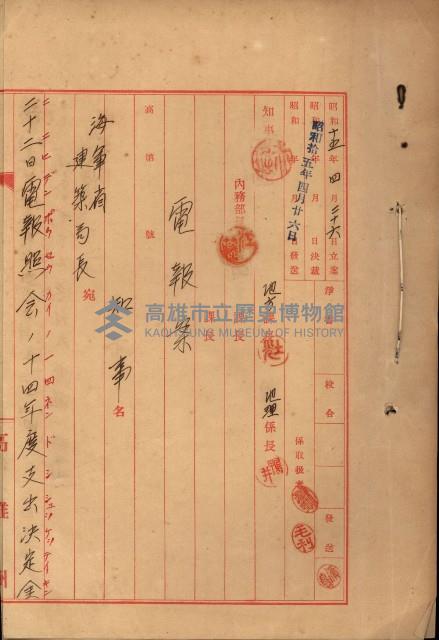 昭和十五年四月二十六日立案
昭和 年 月 日決裁
昭和 年 月 日發送
昭和拾五年四月廿六日
淨書
校合
發送
知事
內務部長
地方課長
課長
課長
地理係長
係取扱者
毛利
高 第 號
電報案
知事名
海軍省
建築局長 宛
二十二日電報照會ノ十四年度支出決定金
ニ ニヒデンポウセウカイノ一四ネンドシシュツケッテイキン
高雄州
高雄市立歷史博物館
KAOHSIUNG MUSEUM OF HISTORY